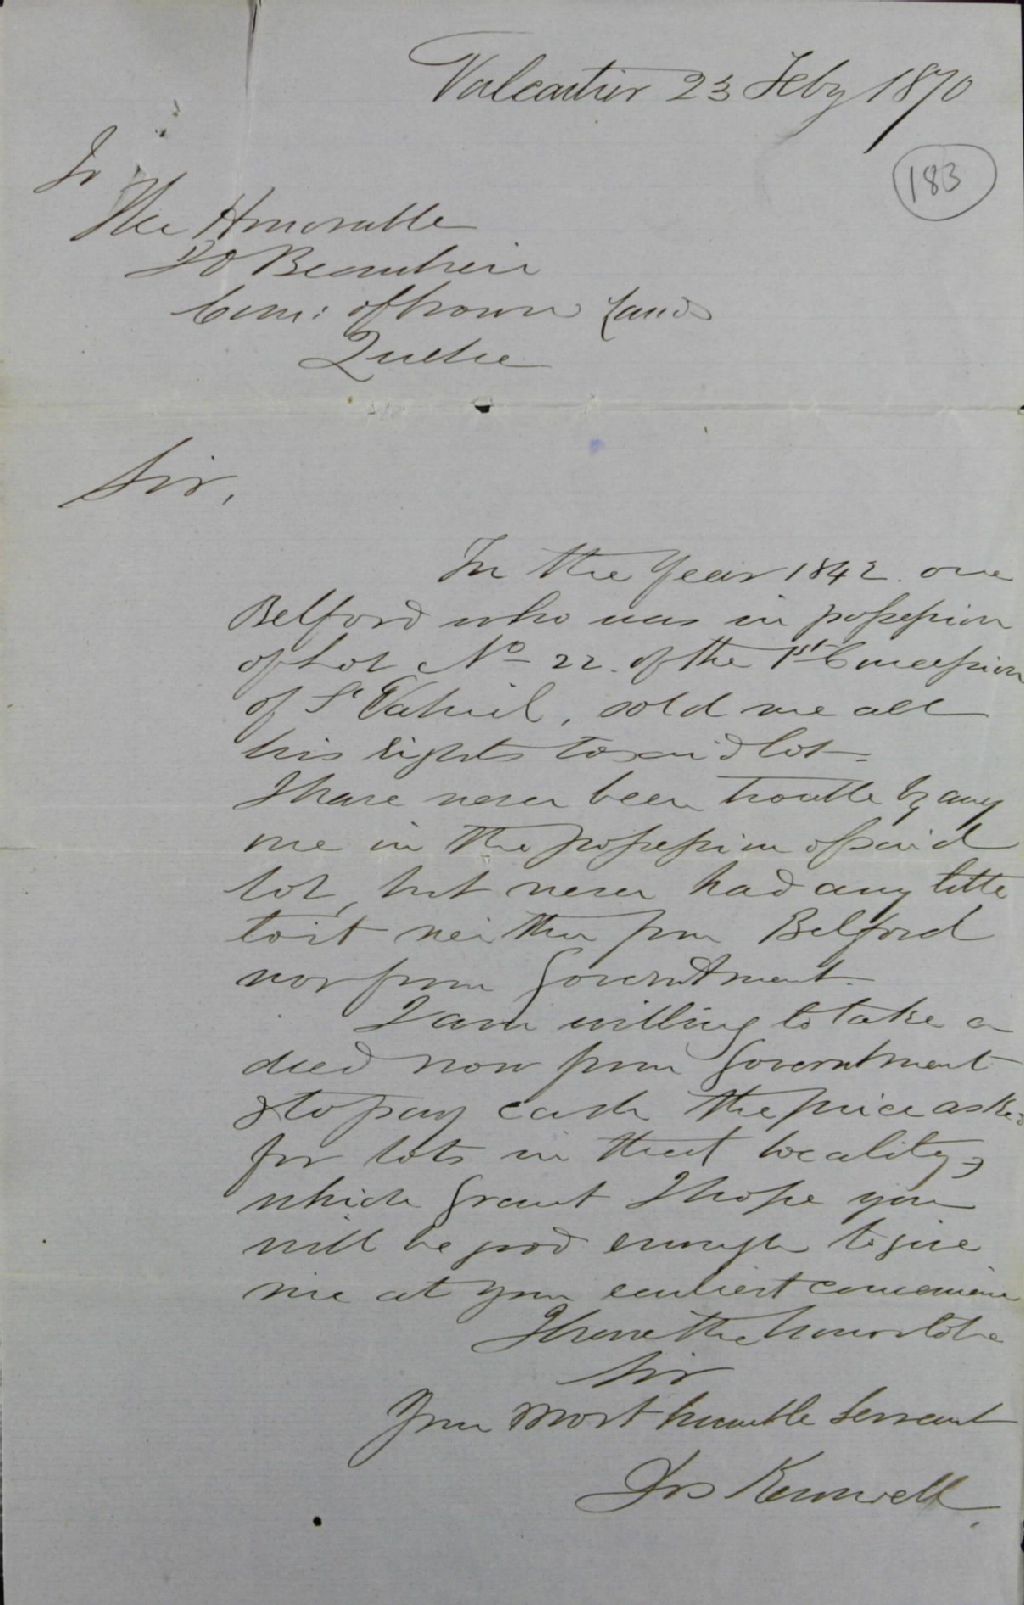 Valcartier 23 Feby 1870
183
To
The Honorable
J O Beaubien
Com: of Crown Lands
Quebec
Sir,
In the Year 1842 one
Belford who was in possession
of Lot No 22 of the 1st Concession
of St Gabriel, sold me all
his rights to said lot.
I have never been trouble by any
one in the possession of said
lot, but never had any title
to it neither from Belford
nor from Government.
I am willing to take a
deed now from Government
& to pay cash the price asked
for lots in that locality,
which grant I hope you
will be good enough to give
me at your earliest
I have the honor to be
Sir
Your most humble Servant